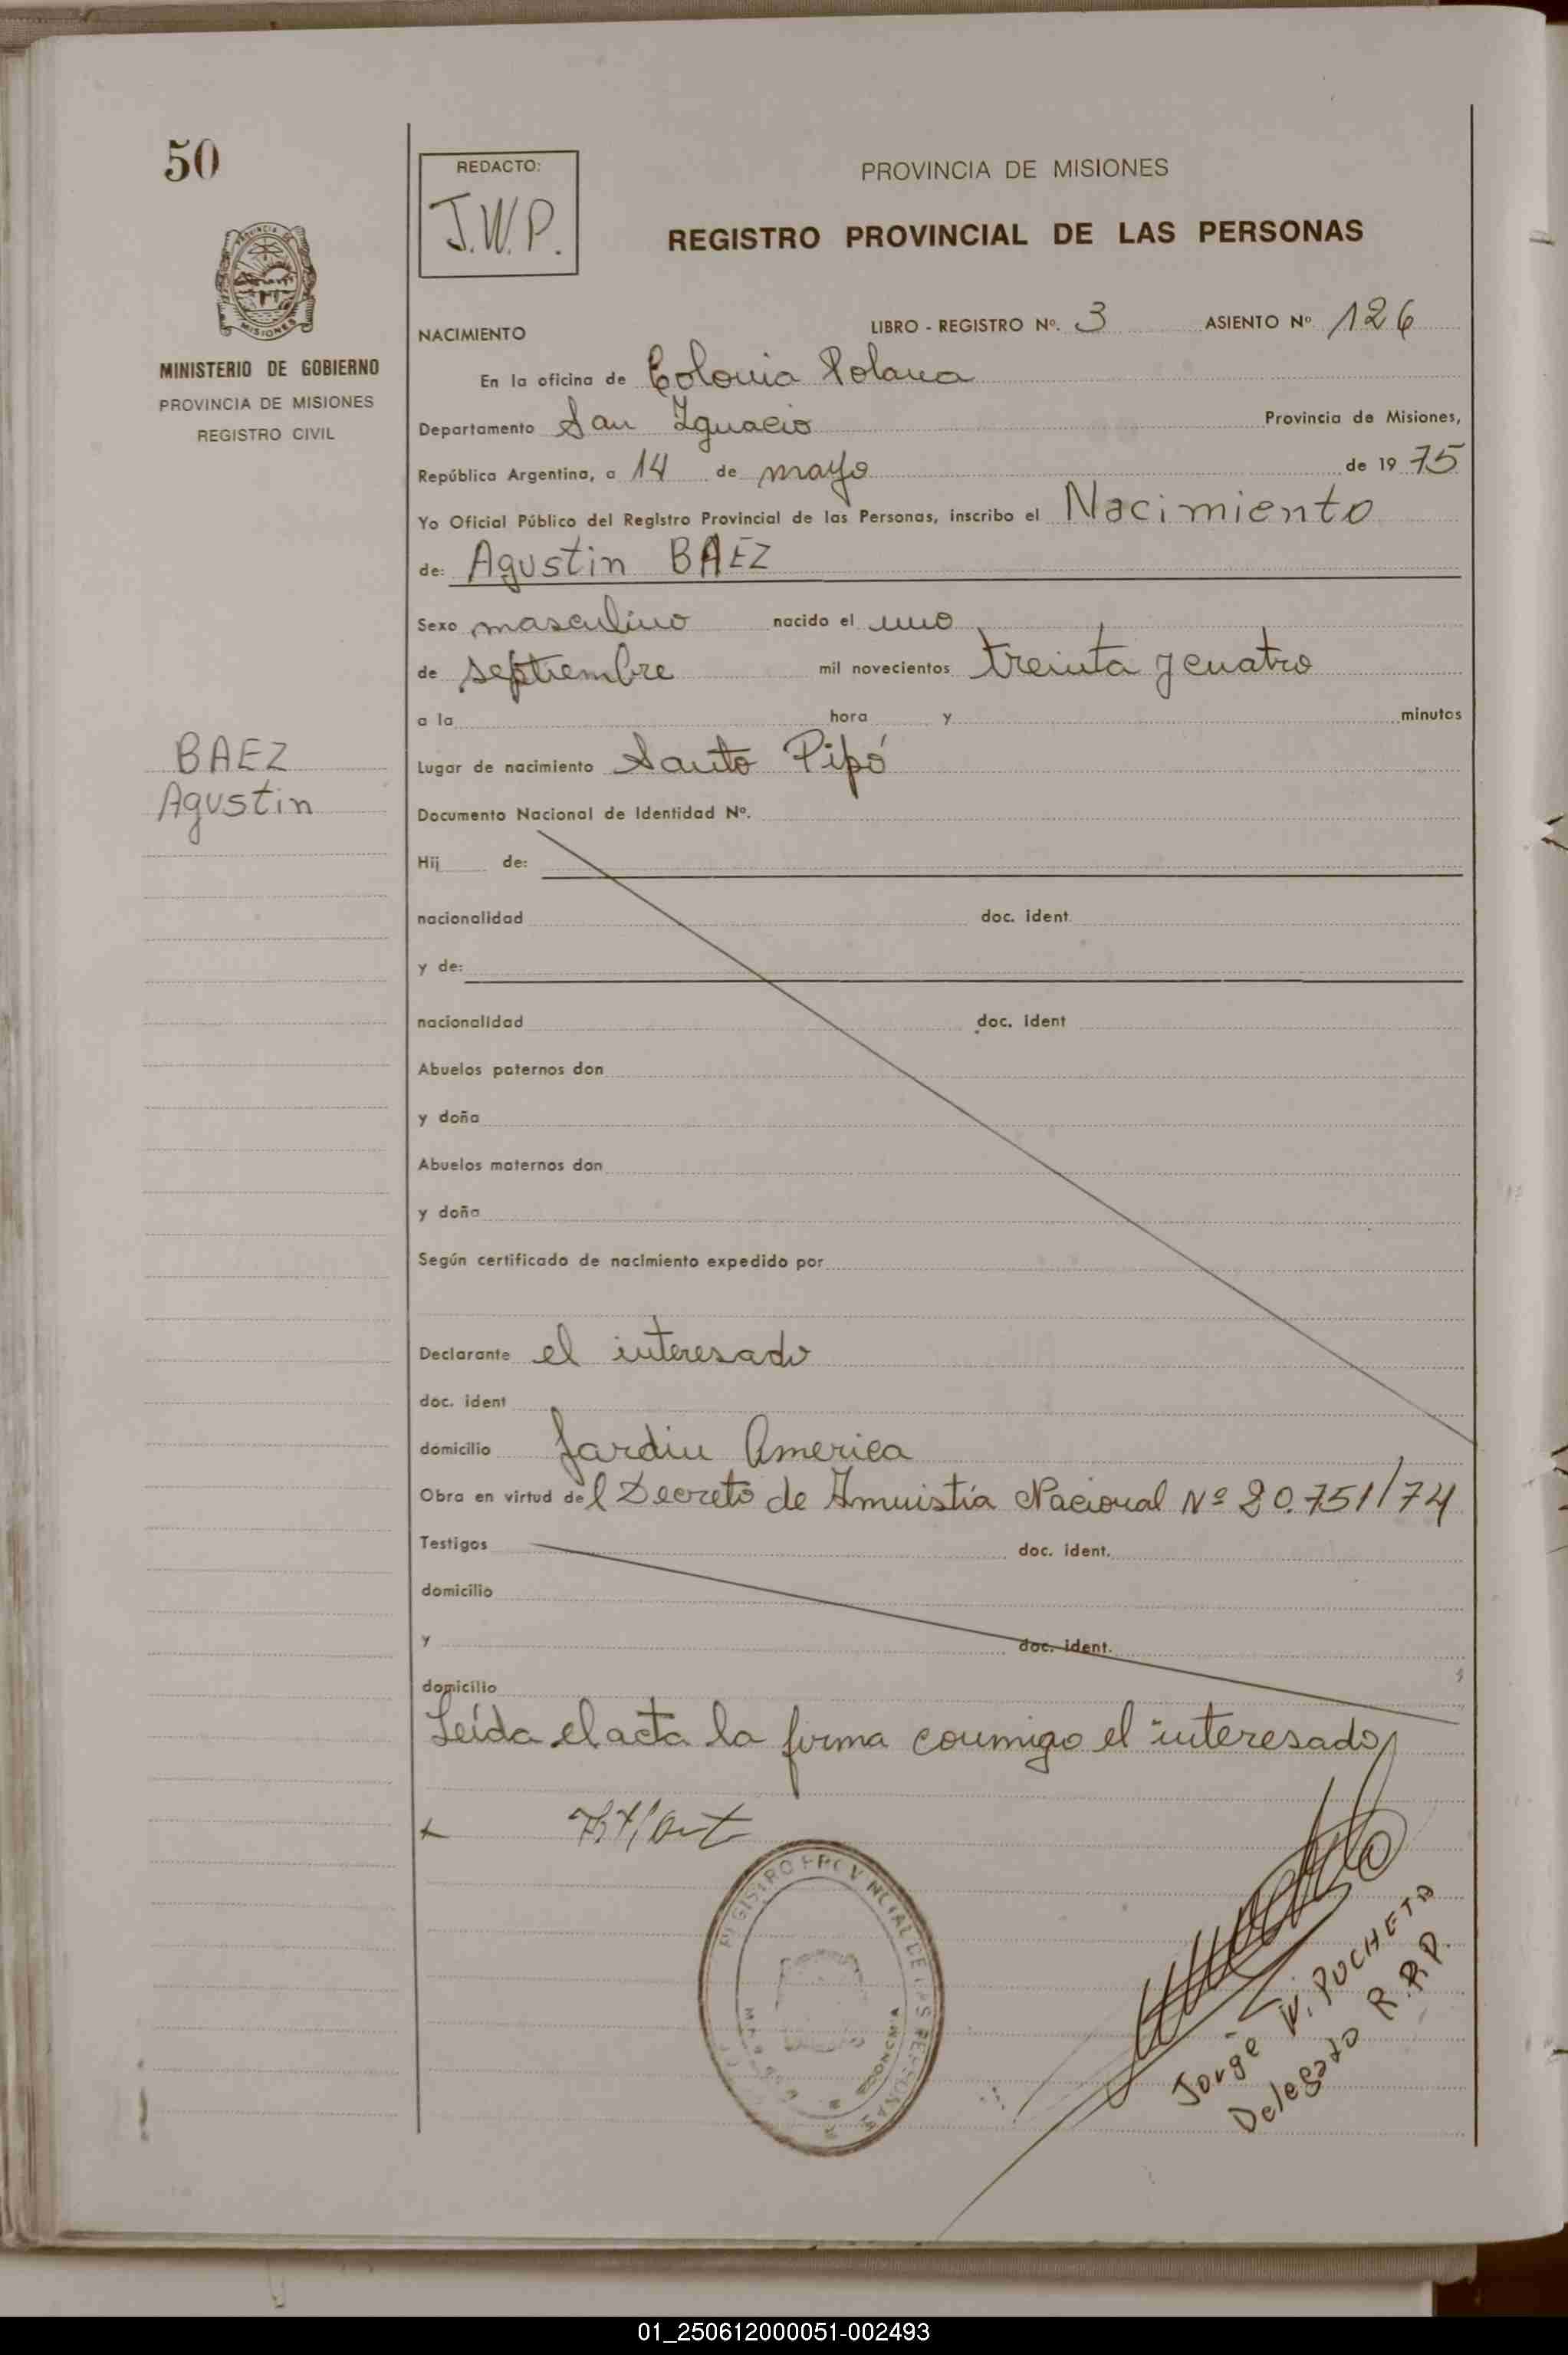 50
MINISTERIO DE GOBIERNO
PROVINCIA DE MISIONES
REGISTRO CIVIL
BAEZ
Agustin
REDACTO:
J.W.P.
PROVINCIA DE MISIONES
REGISTRO PROVINCIAL DE LAS PERSONAS
NACIMIENTO LIBRO - REGISTRO Nº. 3 ASIENTO Nº 126
En la oficina de Colonia Polana
Departamento San Ignacio Provincia de Misiones,
República Argentina, a 14 de mayo de 19 75
Yo Oficial Público del Registro Provincial de las Personas, inscribo el Nacimiento
de: Agustin BAEZ
Sexo masculino nacido el uno
de septiembre mil novecientos treinta y cuatro
a la hora y minutos
Lugar de nacimiento Santo Pipó
Documento Nacional de Identidad Nº.
Hij de:
nacionalidad doc. ident
y de:
nacionalidad doc. ident
Abuelos paternos don
y doña
Abuelos maternos don
y doña
Según certificado de nacimiento expedido por
Declarante el interesado
doc. ident
domicilio Jardin America
Obra en virtud del Decreto de Amnistía Nacional Nº 20.751/74
Testigos doc. ident.
domicilio
y doc. ident.
domicilio
Leída el acta la firma conmigo el interesado
REGISTRO PROVINCIAL DE LAS PERSONAS
Jorge W. PUCHETA
Delegado R.R.P.
01_250612000051-002493